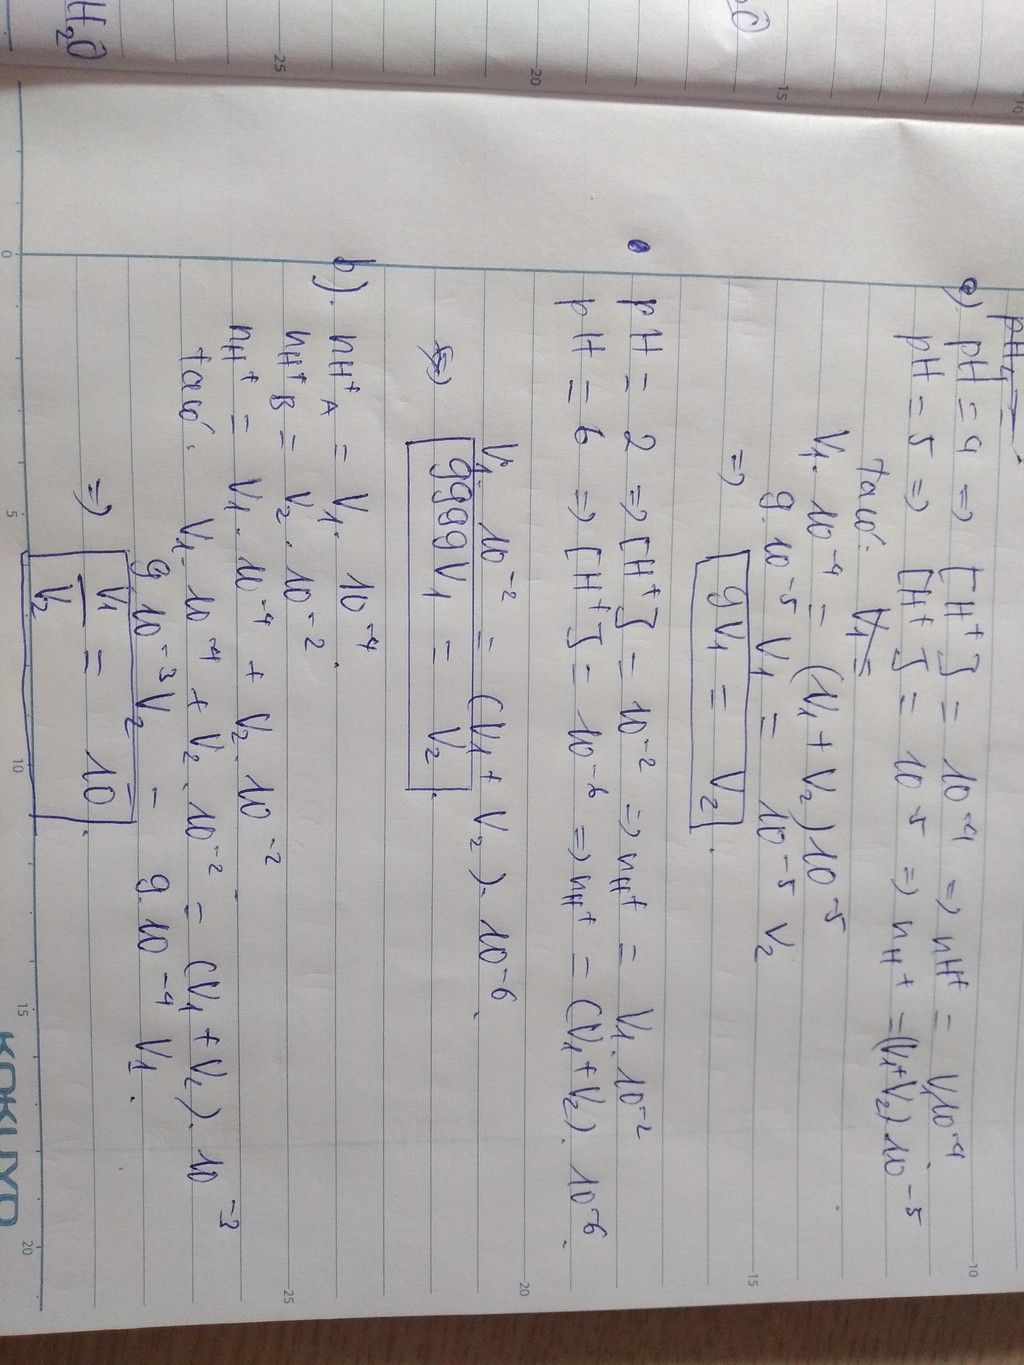 H₂O
a) pH = 4 => [H⁺] = 10⁻⁴ => nH⁺ = V₁10⁻⁴.
pH = 5 => [H⁺] = 10⁻⁵ => nH⁺ = (V₁+V₂).10⁻⁵
ta có: V₁ =
V₁. 10⁻⁴ = (V₁ + V₂)10⁻⁵
9.10⁻⁵ V₁ = 10⁻⁵ V₂
=> 9V₁ = V₂.
• pH = 2 => [H⁺] = 10⁻² => nH⁺ = V₁.10⁻²
pH = 6 => [H⁺] = 10⁻⁶ => nH⁺ = (V₁+V₂). 10⁻⁶.
V₁. 10⁻² = (V₁ + V₂). 10⁻⁶.
9999V₁ = V₂.
b). nH⁺ A = V₁. 10⁻⁴.
nH⁺ B = V₂. 10⁻²
nH⁺ = V₁. 10⁻⁴ + V₂. 10⁻².
ta có: V₁. 10⁻⁴ + V₂. 10⁻² = (V₁ + V₂). 10⁻³
9.10⁻³V₂ = 9.10⁻⁴ V₁.
=> V₁/V₂ = 10.
KOKUYO